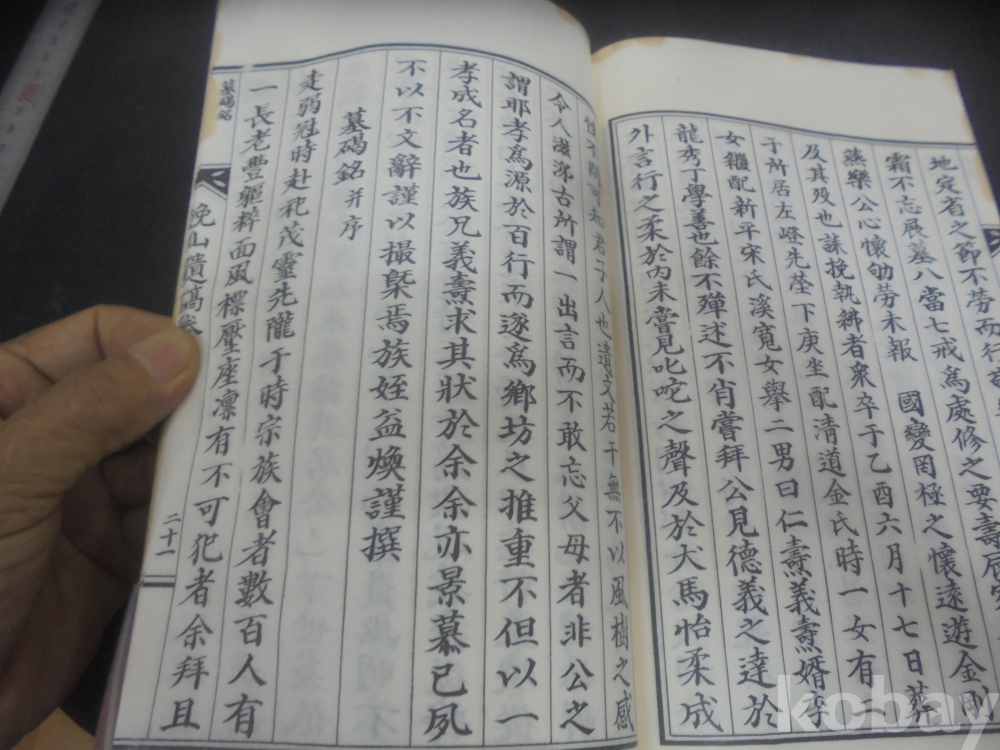 地定省之節不勞而行
霜不忘展墓八當七戒爲處修之要壽辰
燕樂公心懷劬勞未報 國變罔極之懷遂遊金剛
及其歿也誄挽執紼者衆卒于乙酉六月十七日葬
于所居左嶝先塋下庚坐配清道金氏時一女有
女繼配新平宋氏溪寬女擧二男曰仁壽義壽婿李
龍秀丁學善也餘不殫述不肖嘗拜公見德義之達於
外言行之柔於內未嘗見叱咤之聲及於犬馬怡柔成
性不問可知君子人也遺文若干無不以風樹之感
令人滋涕古所謂一出言而不敢忘父母者非公之
謂耶孝爲源於百行而遂爲鄕坊之推重不但以一
孝成名者也族兄義壽求其狀於余余亦景慕已夙
不以不文辭謹以撮槩焉族姪益煥謹撰
墓碣銘 并序
走弱冠時赴祀茂靈先隴于時宗族會者數百人有
一長老豐軀粹面風標壓座凛有不可犯者余拜且
墓碣銘
晚山遺稿卷
二十一
kobay